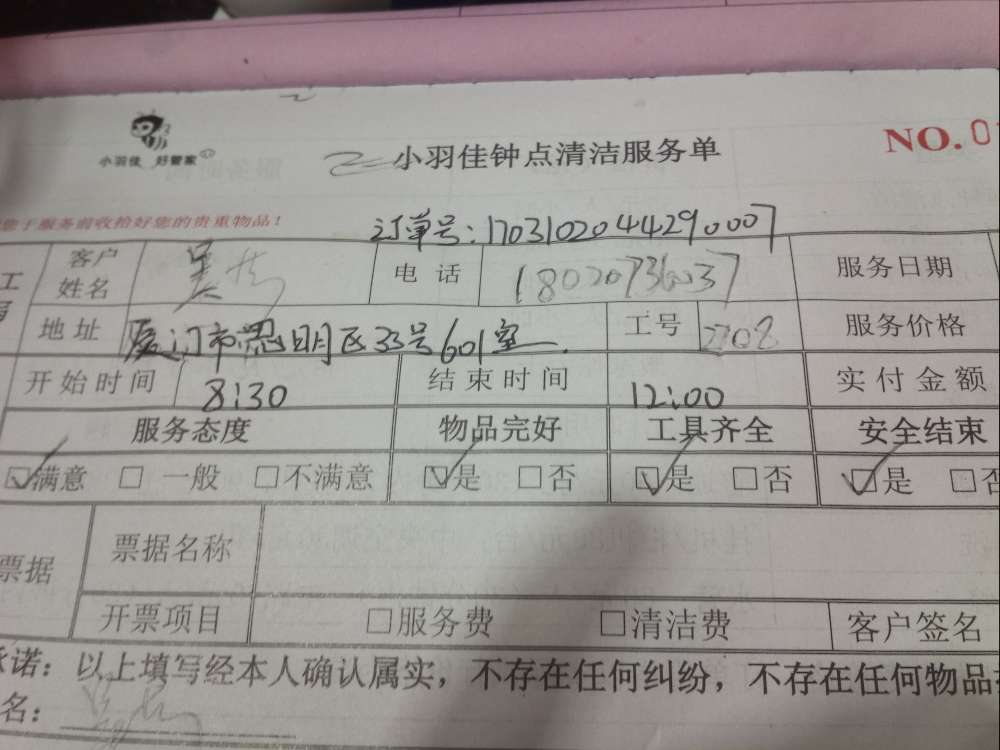 小羽佳 好管家
小羽佳钟点清洁服务单 NO.0
您于服务前收拾好您的贵重物品！ 订单号:1703102044290007
工 客户姓名 吴 电话 18020736037 服务日期
地址 厦门市思明区33号601室 工号 2708 服务价格
开始时间 8:30 结束时间 12:00 实付金额
服务态度 物品完好 工具齐全 安全结束
☑满意 □一般 □不满意 ☑是 □否 ☑是 □否 ☑是 □否
票据 票据名称
开票项目 □服务费 □清洁费 客户签名
承诺：以上填写经本人确认属实，不存在任何纠纷，不存在任何物品
名：